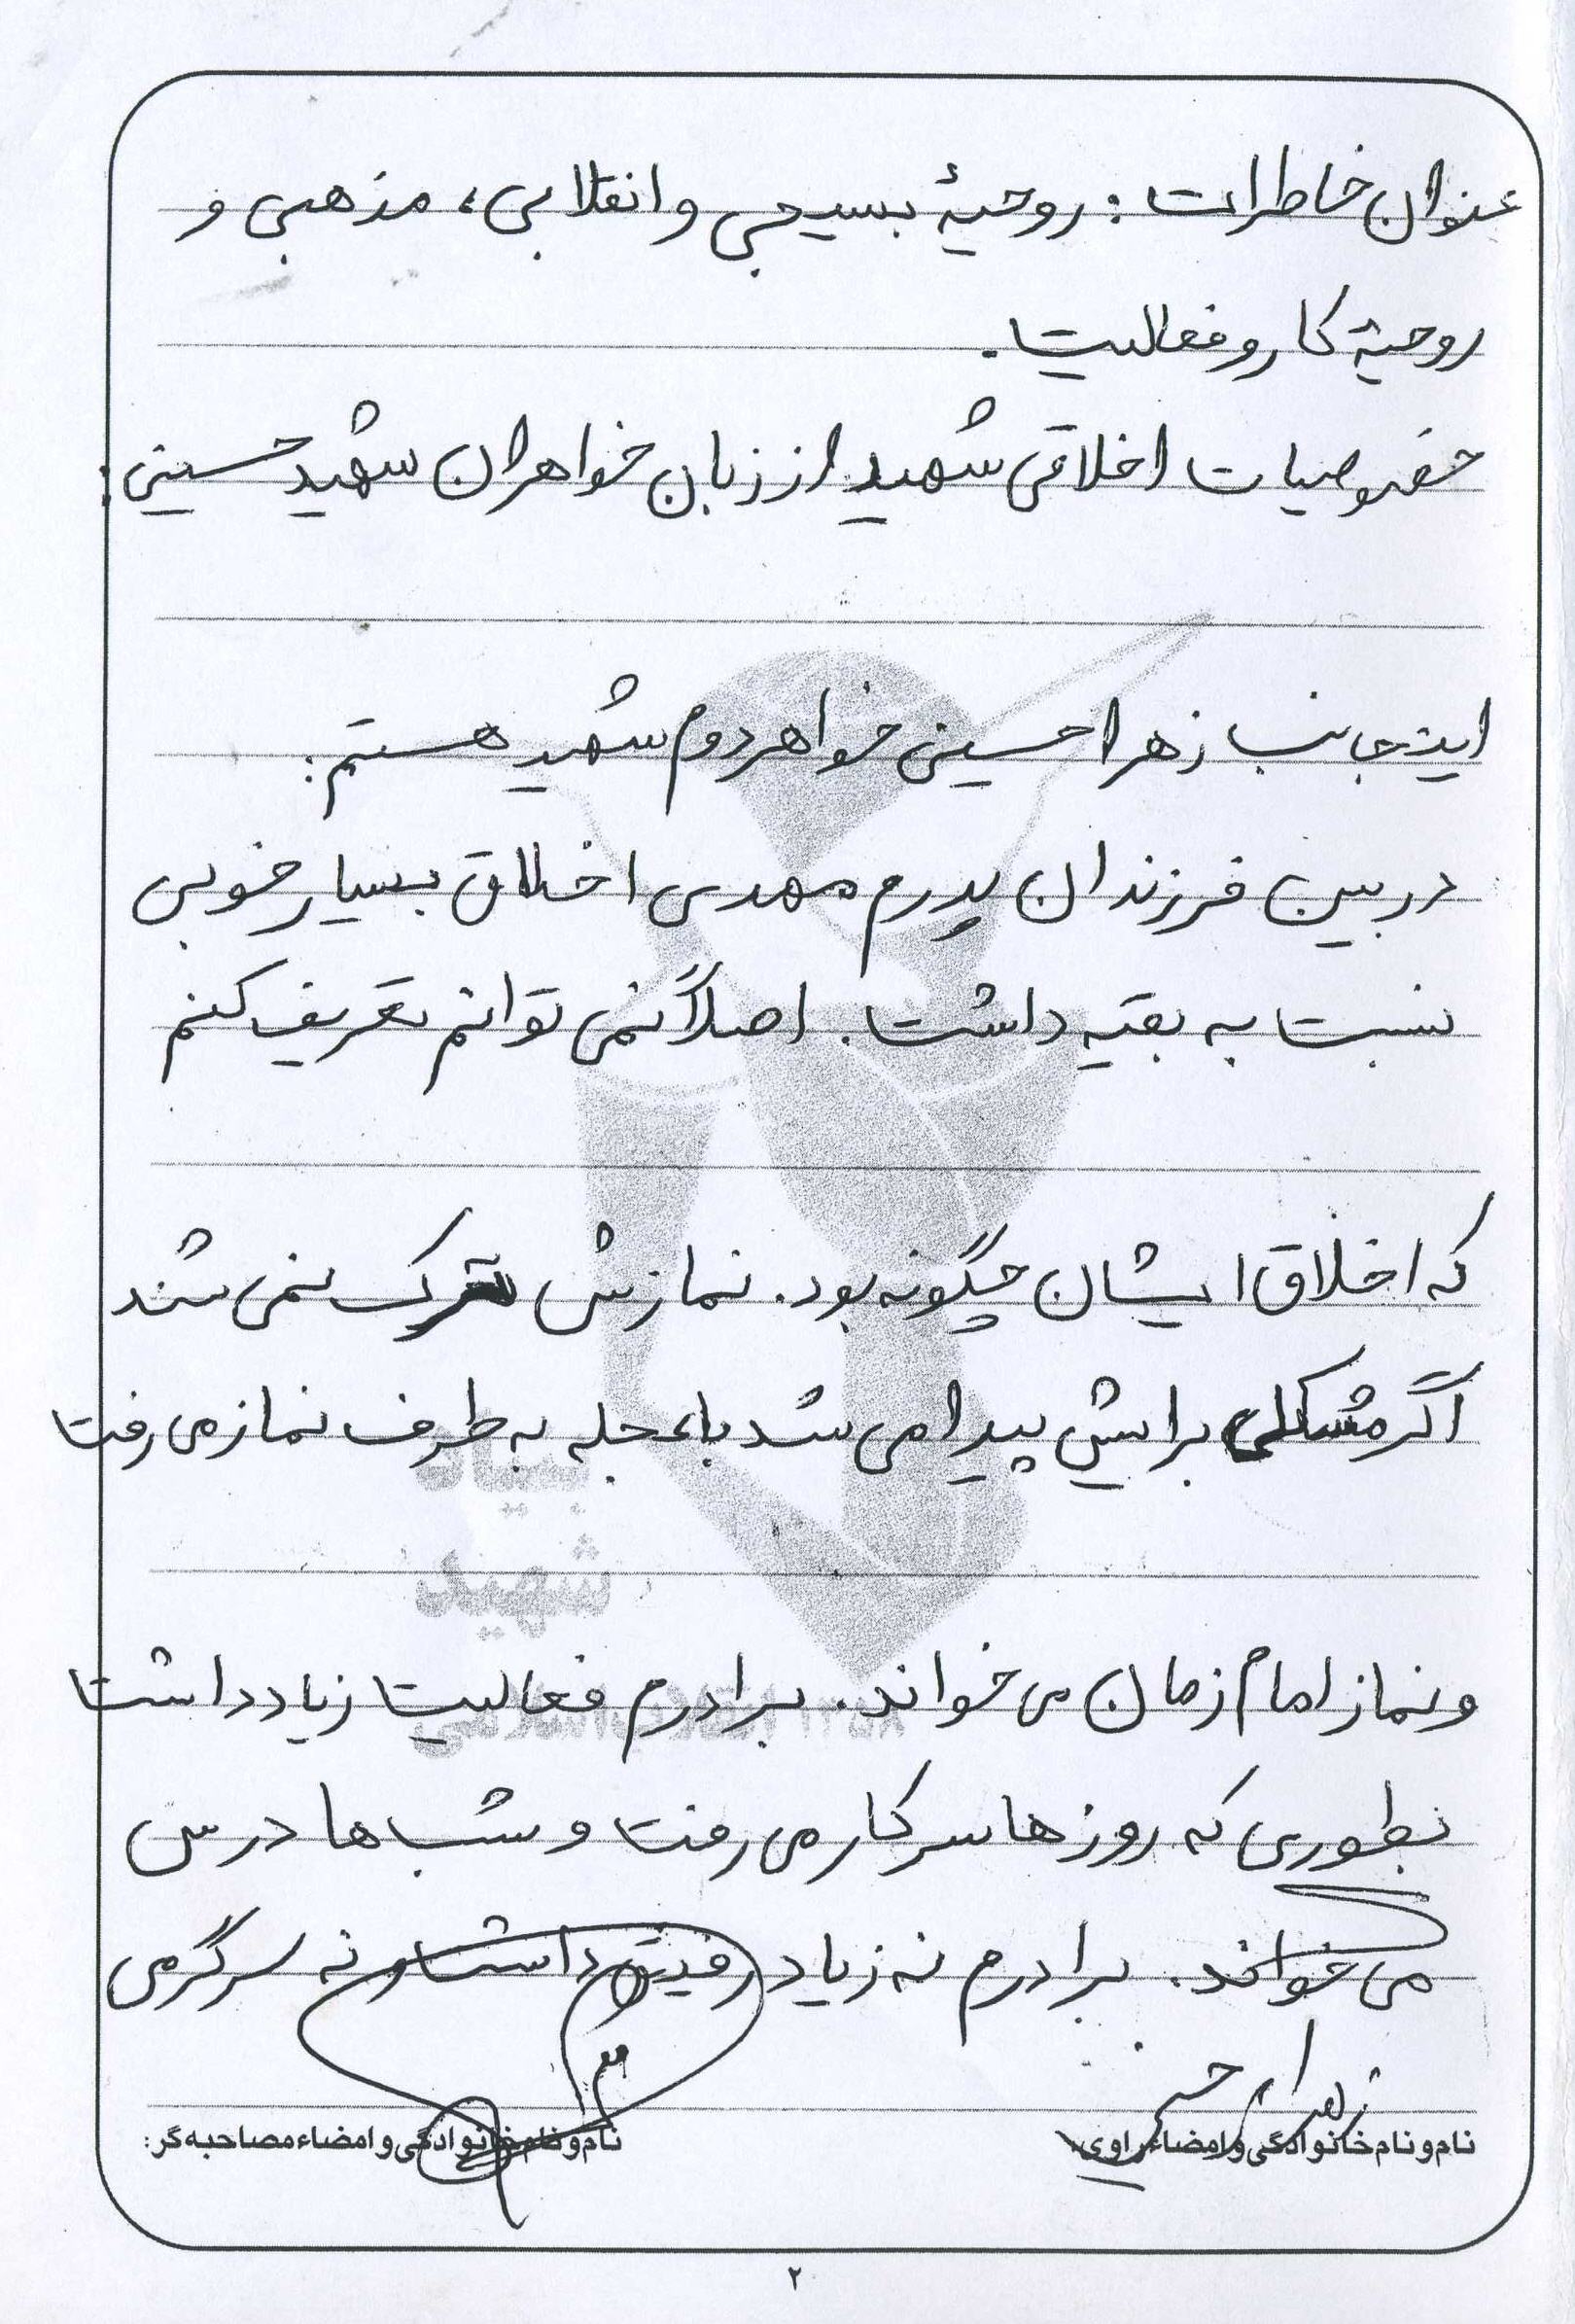 عنوان خاطرات : روحیهٔ بسیجی و انقلابی، مذهبی و
روحیهٔ کار و فعالیت.
خصوصیات اخلاقی شهید از زبان خواهران شهید حسینی:
اینجانب زهرا حسینی خواهر دوم شهید هستم:
در بین فرزندان پدرم مهدی اخلاق بسیار خوبی
نسبت به بقیه داشت. اصلاً نمی توانم تعریف کنم
که اخلاق ایشان چگونه بود. نمازش ترک نمی شد
اگر مشکلی برایش پیدا می شد با عجله به طرف نماز می رفت
بنیاد
شهید
و نماز امام زمان می خواند. برادرم فعالیت زیاد داشت
۱۳۵۸ انقلاب اسلامی
بطوری که روزها سر کار می رفت و شب ها درس
می خواند. برادرم نه زیاد رفیق داشت و نه سرگرمی
زهرا حسینی
نام و نام خانوادگی و امضاء راوی:
نام و نام خانوادگی و امضاء مصاحبه گر:
۲